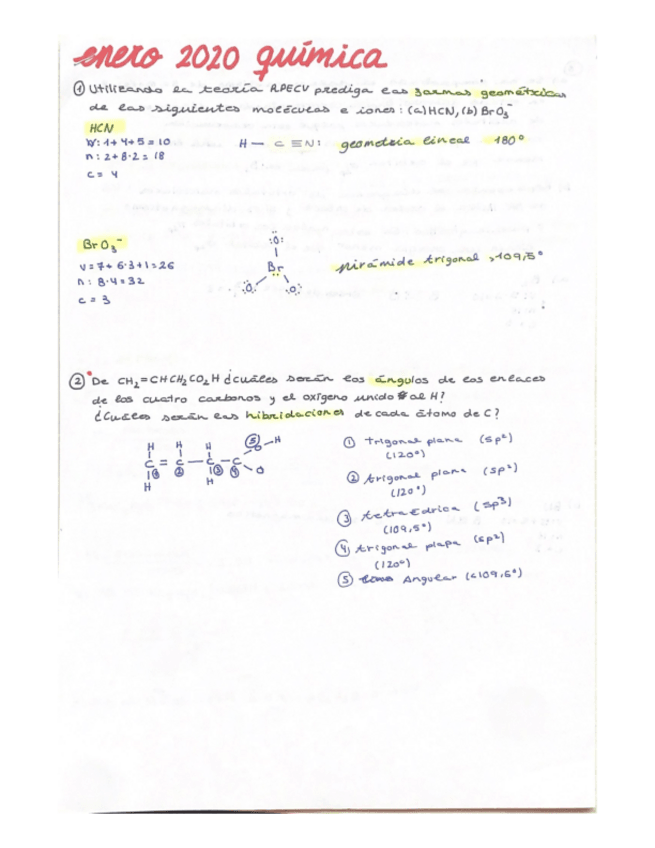 enero 2020 química
① Utilizando la teoría RPECV prediga las formas geométricas
de las siguientes moléculas e iones: (a) HCN, (b) BrO₃⁻
HCN
v: 1+4+5=10
n: 2+8·2=18
c= 4
H — C ≡ N: geometría lineal 180°
BrO₃⁻
v=7+6·3+1=26
n: 8·4=32
c= 3
:O:
Br
O O
pirámide trigonal >109,5°
② De CH₂=CHCH₂CO₂H ¿cuáles serán los ángulos de los enlaces
de los cuatro carbonos y el oxígeno unido al H?
¿Cuáles serán las hibridaciones de cada átomo de C?
H H H ⑤ O - H
C = C — C — C
① ② ③ ④ O
H H
① trigonal plana (sp²)
(120°)
② trigonal plana (sp²)
(120°)
③ tetraédrica (sp³)
(109,5°)
④ trigonal plana (sp²)
(120°)
⑤ Angular (<109,5°)